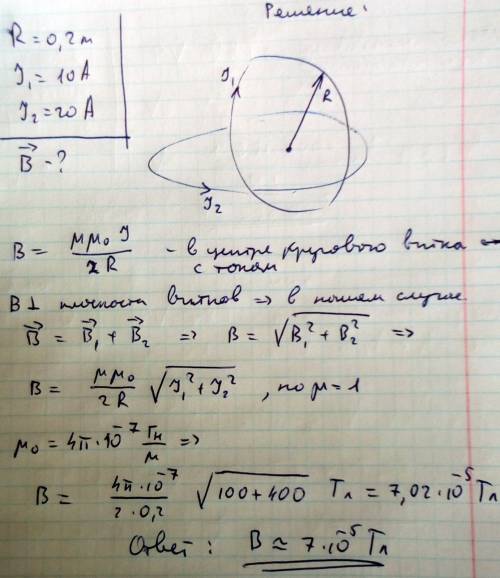 Решение:
R = 0,2 м
I₁ = 10 А
I₂ = 20 А
B⃗ - ?
I₁
R
I₂
B = μμ₀ I / 2R - в центре кругового витка с током
B ⊥ плоскости витков => в нашем случае
B⃗ = B⃗₁ + B⃗₂ => B = √(B₁² + B₂²) =>
B = μμ₀ / 2R √(I₁² + I₂²) , но μ = 1
μ₀ = 4π·10⁻⁷ Гн/м =>
B = 4π·10⁻⁷ / 2·0,2 √(100+400) Тл = 7,02·10⁻⁵ Тл
Ответ: B ≃ 7·10⁻⁵ Тл